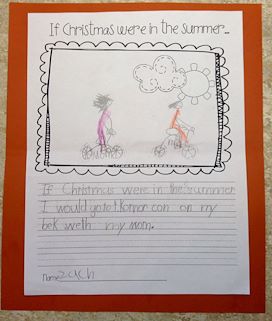 If Christmas were in the summer...
If Christmas were in the summer
I would go to con on my
bek weth my mom.
Name zach